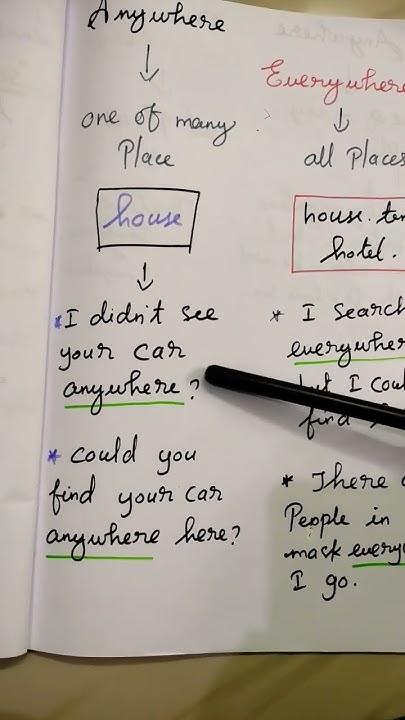 Anywhere
↓
one of many
Place
house
↓
* I didn't see
your car
anywhere ?
* could you
find your car
anywhere here?
Everywhere
↓
all Places
house. 
hotel.
* I Search
everywher
but I coul
find
* There
People in
mask every
I go.